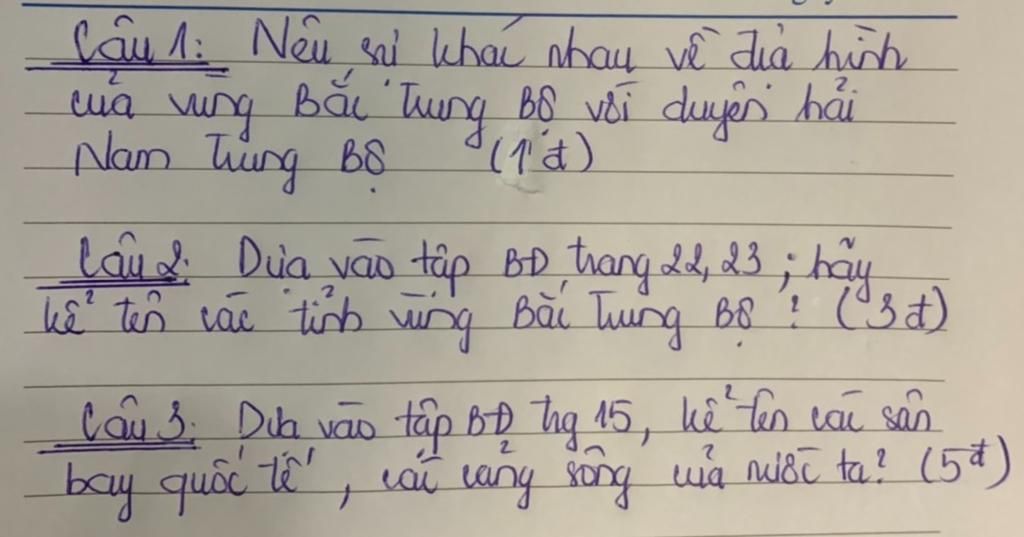 Câu 1: Nêu sự khác nhau về địa hình
của vùng Bắc Trung Bộ với duyên hải
Nam Trung Bộ (1đ)
Câu 2. Dựa vào tập BĐ trang 22, 23 ; hãy
kể tên các tỉnh vùng Bắc Trung Bộ ? (3đ)
Câu 3. Dựa vào tập BĐ trg 15, kể tên các sân
bay quốc tế , các cảng sông của nước ta? (5đ)